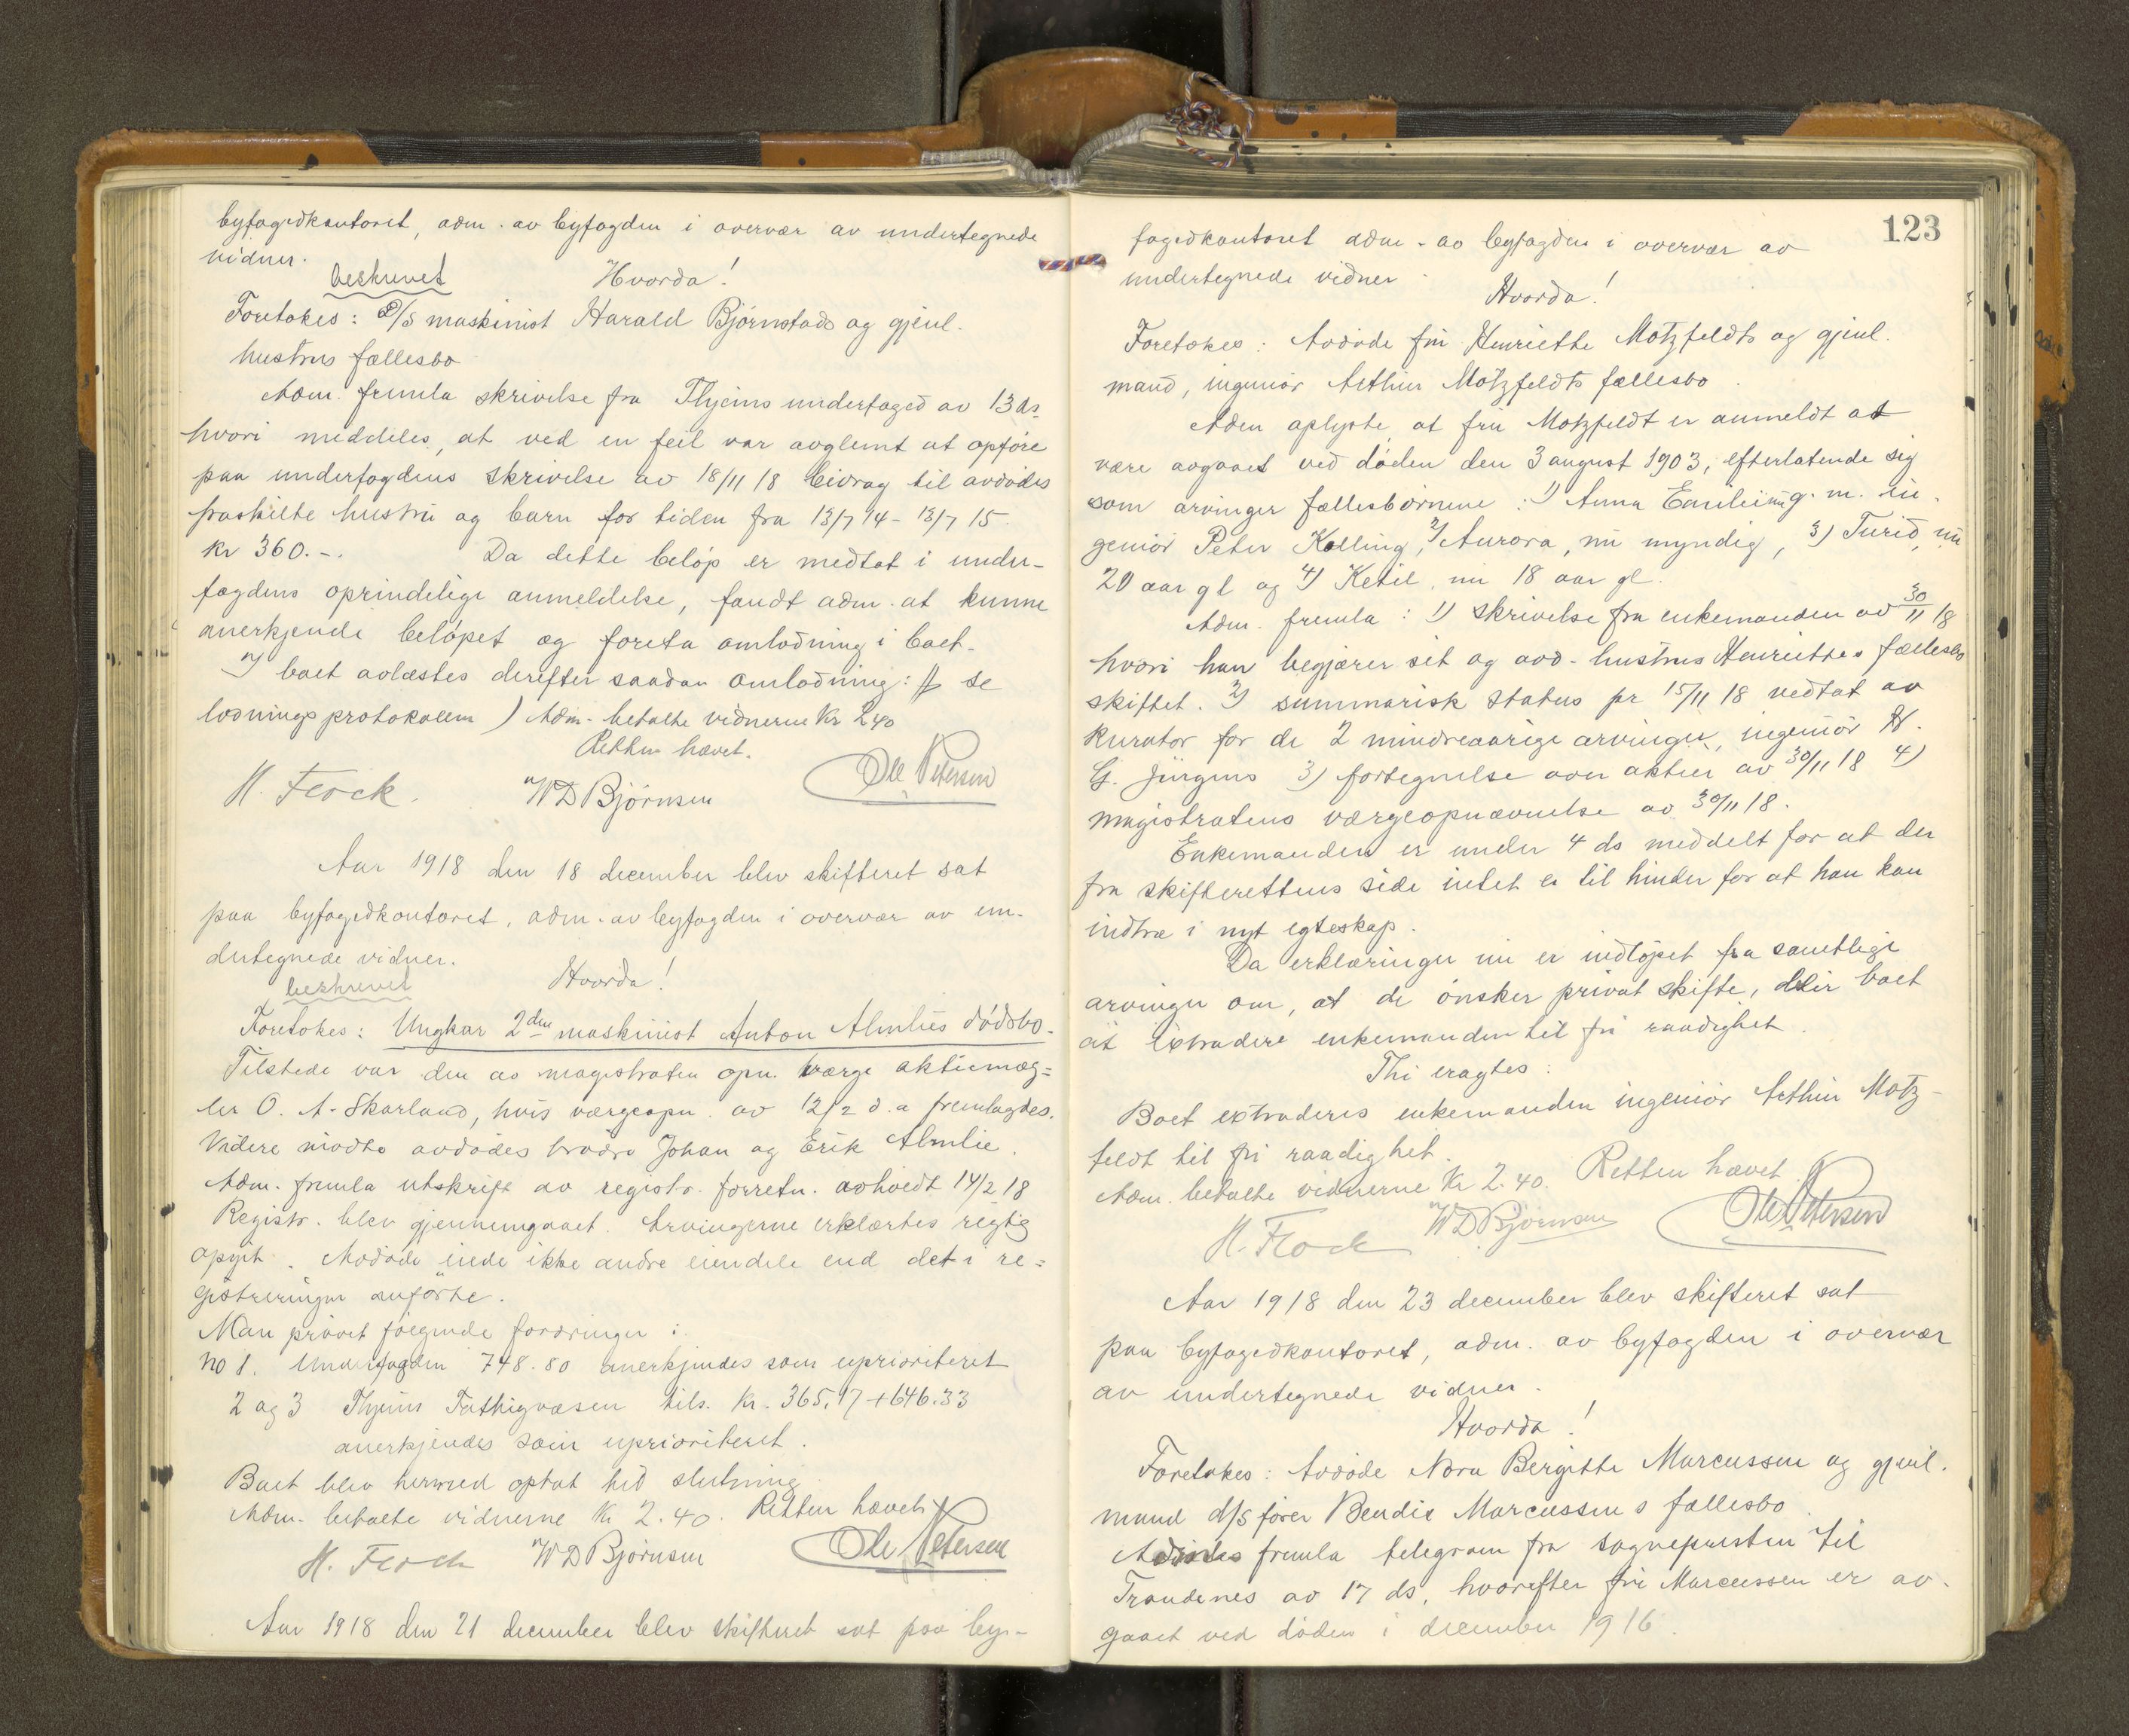 byfogedkontoret, adm. av byfogden i overvær av undertegnede
vidner.
beskrevet Hvorda!
Foretokes: D/S maskinist Harald Bjørnstads og gjenl.
hustrus fællesbo
Adm. fremla skrivelse fra Thjems underfoged av 13 ds.
hvori meddeles, at ved en feil var avglemt at opføre
paa underfogdens skrivelse av 18/11 18 bidrag til avdødes
fraskilte hustru og barn for tiden fra 13/7 14 - 13/7 15
kr 360.-. Da dette beløp er medtat i under-
fogdens oprindelige anmeldelse, fandt adm. at kunne
anerkjende beløpet og foreta omlodning i boet.
I boet avlæstes derefter saadan omlodning: (se
lodningsprotokollen) Adm. betalte vidnerne Kr 2.40
Retten hævet.
H. Flock. W D Bjørnsen Ole Petersen
Aar 1918 den 18 december blev skifteret sat
paa byfogedkontoret, adm. av byfogden i overvær av un-
dertegnede vidner.
beskrevet Hvorda!
Foretokes: Ungkar 2den maskinist Anton Almlies dødsbo.
Tilstede var den av magistraten opn. værge aktiemæg=
ler O. A. Skarland, hvis værgeopn. av 12/2 d.a fremlagdes.
Videre mødte avdødes brødre Johan og Erik Almlie.
Adm. fremla utskrift av registr. forretn. avholdt 14/2 18
Registr. blev gjennemgaaet. Arvingerne erklærtes rigtig
opgit. Avdøde eiede ikke andre eiendele end det i re=
gistreringen anførte.
Man prøvet følgende fordringer:
no 1. Underfogden 748.80 anerkjendes som uprioriteret
2 og 3 Thjems Fattigvæsen tils. Kr. 365.17 + 646.33
anerkjendes som uprioriteret.
Boet blev hermed optat til slutning
Adm. betalte vidnerne Kr 2.40. Retten hævet
H. Flock W D Bjørnsen Ole Petersen
Aar 1918 den 21 december blev skifteret sat paa by-
123
fogedkontoret adm. av byfogden i overvær av
undertegnede vidner.
Hvorda!
Foretokes: Avdøde fru Henriette Motzfeldts og gjenl.
mand, ingeniør Arthur Motzfeldts fællesbo.
Adm oplyste at fru Motzfeldt er anmeldt at
være avgaaet ved døden den 3 august 1903, efterlatende sig
som arvinger fællesbørnene: 1) Anna g. m. in-
geniør Peter Kolling, 2) Aurora, nu myndig, 3) Turid, nu
20 aar gl og 4) Ketil, nu 18 aar gl.
Adm. fremla: 1) skrivelse fra enkemanden av 30/11 18
hvori han begjærer sit og avd. hustrus Henriettes fællesbo
skiftet. 2) summarisk status pr 15/11 18 vedtat av
kurator for de 2 mindreaarige arvinger, ingeniør H.
G. Jürgens 3) fortegnelse over aktier av 30/11 18 4)
magistratens værgeopnævnelse av 30/11 18.
Enkemanden er under 4 ds meddelt for at der
fra skifterettens side intet er til hinder for at han kan
indtræ i nyt egteskap.
Da erklæringer nu er indløpet fra samtlige
arvinger om, at de ønsker privat skifte, blir boet
at extradere enkemanden til fri raadighet.
Thi eragtes:
Boet extraderes enkemanden ingeniør Arthur Motz-
feldt til fri raadighet.
Adm. betalte vidnerne Kr 2.40. Retten hævet
H. Flock W D Bjørnsen Ole Petersen
Aar 1918 den 23 december blev skifteret sat
paa byfogedkontoret, adm. av byfogden i overvær
av undertegnede vidner.
Hvorda!
Foretokes: Avdøde Nora Bergitte Marcussen og gjenl.
mand d/s fører Bendix Marcussens fællesbo.
fremla telegram fra sognepresten til
Trondenes av 17 ds, hvorefter fru Marcussen er av-
gaaet ved døden i december 1916.